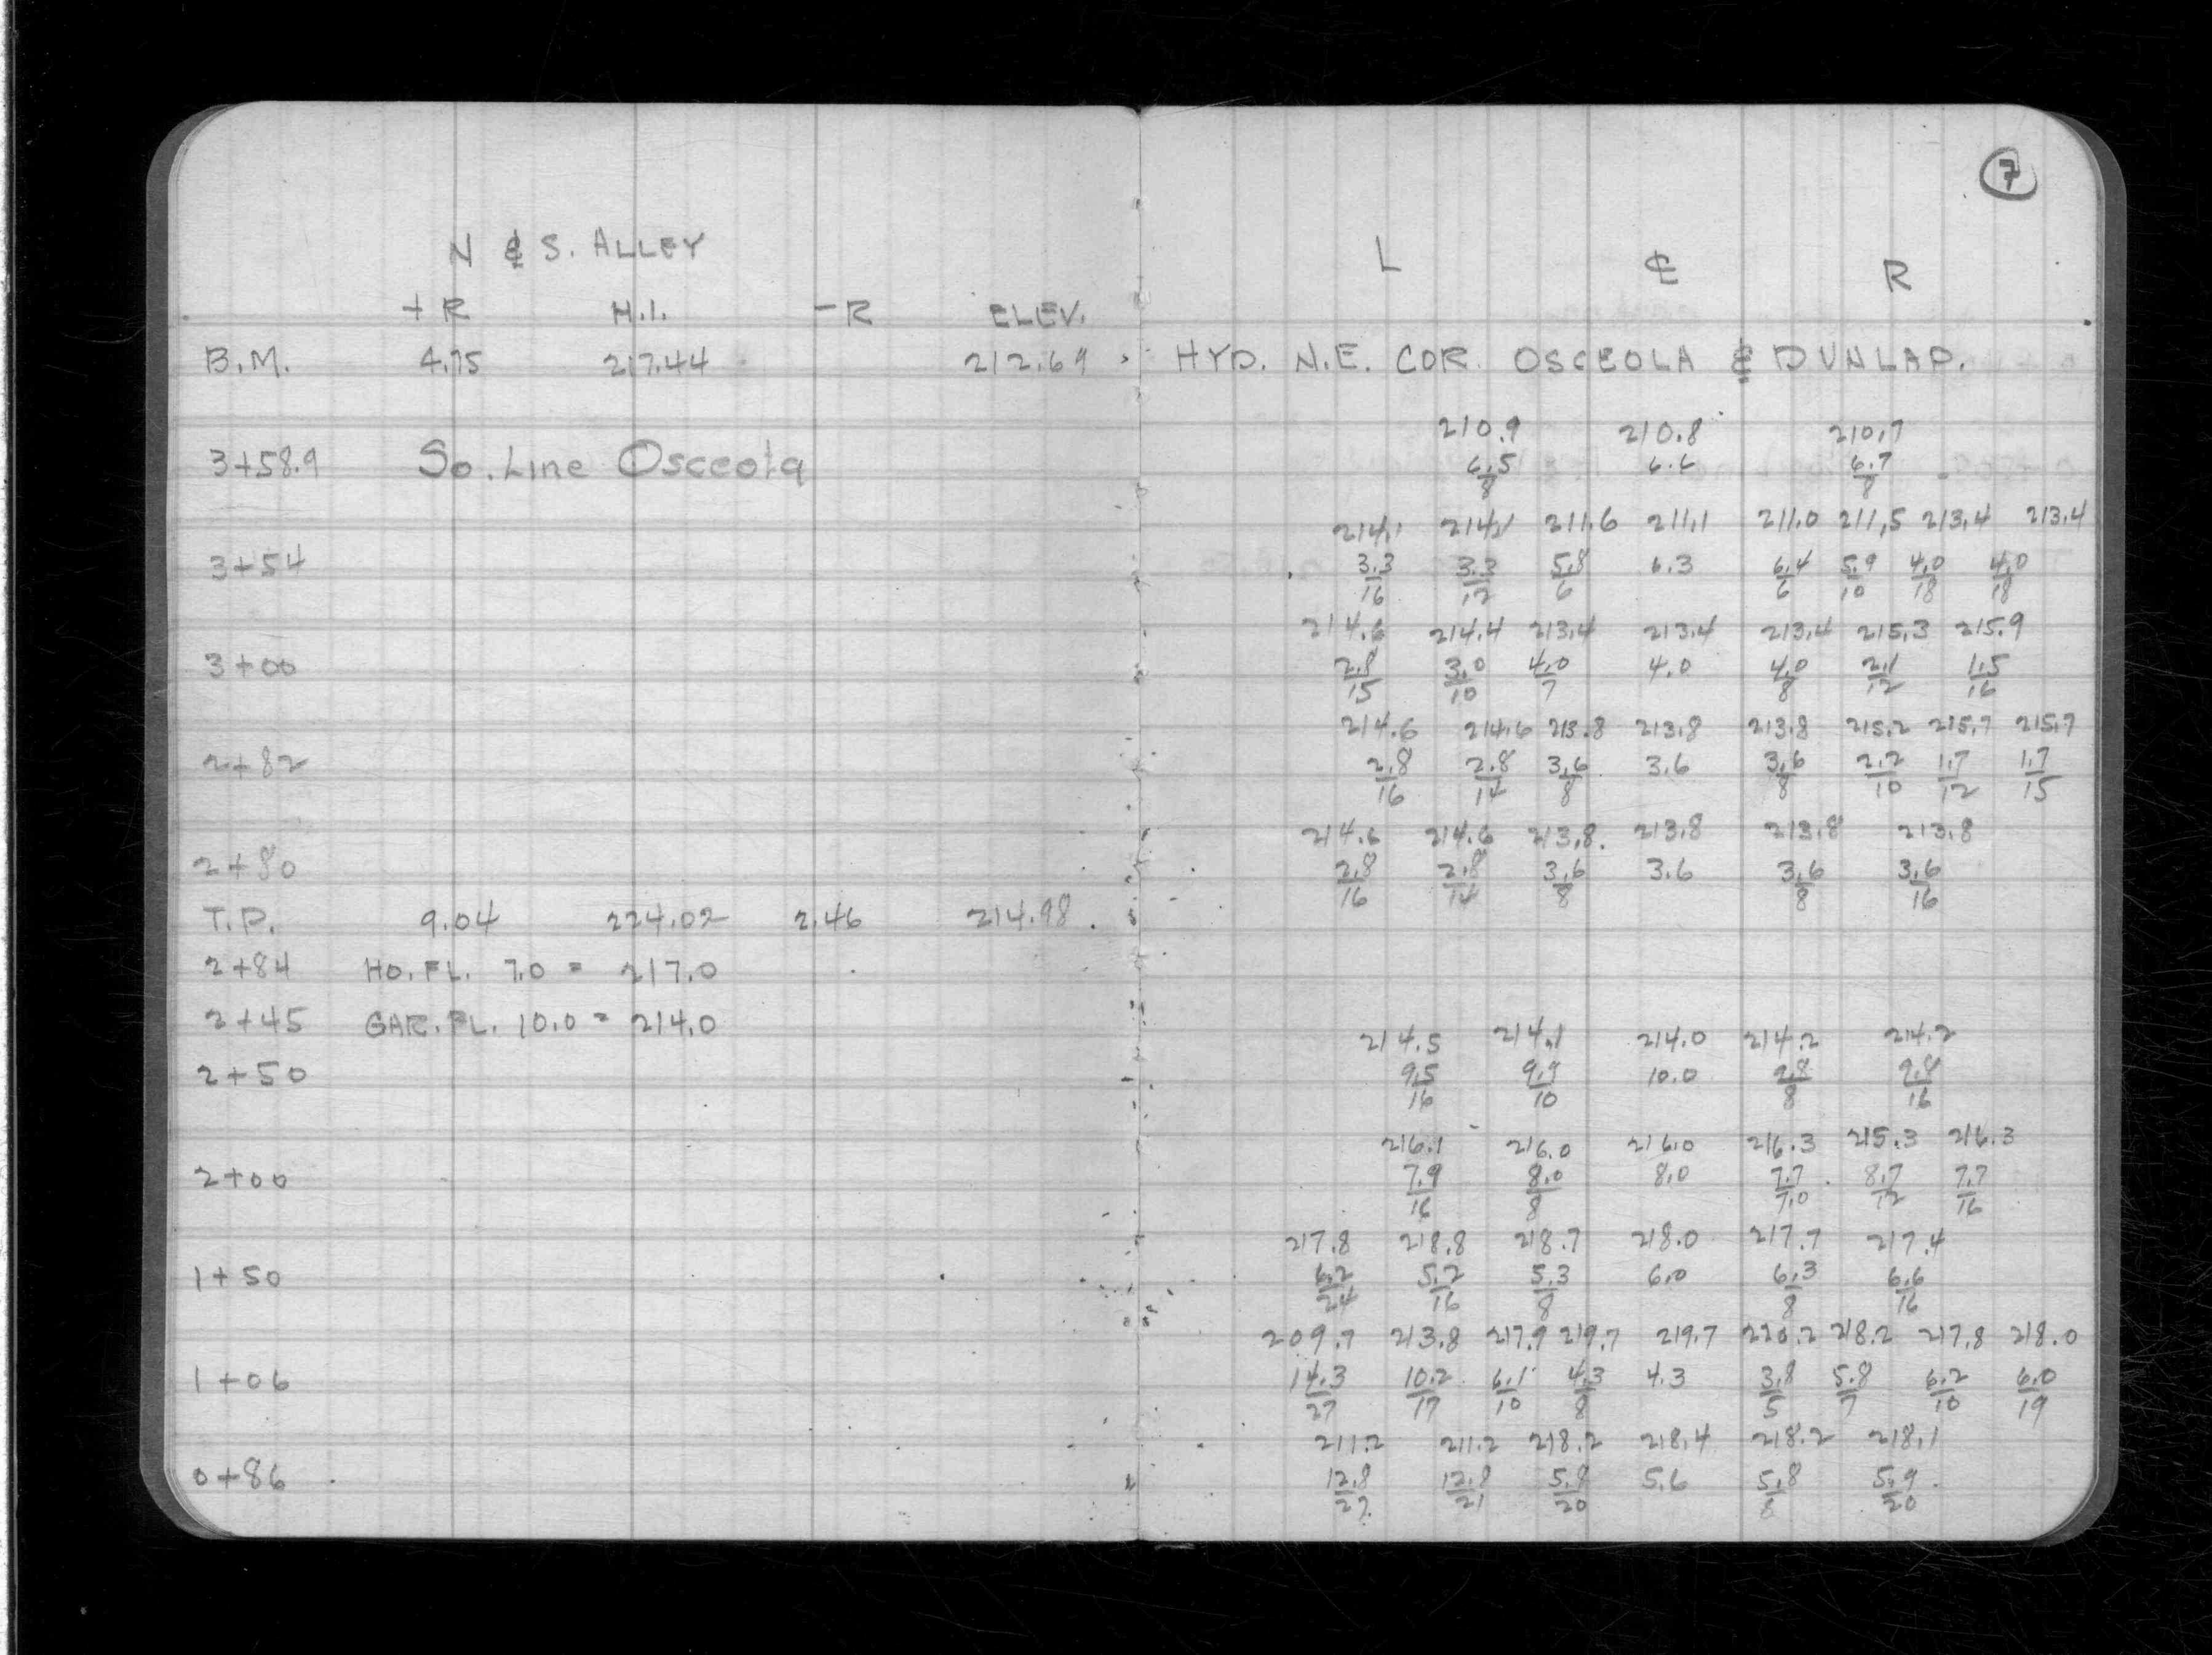 7
N & S. ALLEY
L ℄ R
+R H.I. -R ELEV.
B.M. 4.75 217.44 212.69 HYD. N.E. COR. OSCEOLA & DUNLAP.
210.9 210.8 210.7
3+58.9 So. Line Osceola 6.5/8 6.6 6.7/8
214.1 214.1 211.6 211.1 211.0 211.5 213.4 213.4
3+54 3.3/16 3.3/12 5.8/6 6.3 6.4/6 5.9/10 4.0/18 4.0/18
214.6 214.4 213.4 213.4 213.4 215.3 215.9
3+00 2.8/15 3.0/10 4.0/7 4.0 4.0/8 2.1/12 1.5/16
214.6 214.6 213.8 213.8 213.8 215.2 215.7 215.7
2+82 2.8/16 2.8/14 3.6/8 3.6 3.6/8 2.2/10 1.7/12 1.7/15
214.6 214.6 213.8 213.8 213.8 213.8
2+80 2.8/16 2.8/14 3.6/8 3.6 3.6/8 3.6/16
T.P. 9.04 224.02 2.46 214.98
2+84 HO. FL. 7.0 = 217.0
2+45 GAR. FL. 10.0 = 214.0
214.5 214.1 214.0 214.2 214.2
2+50 9.5/16 9.9/10 10.0 9.8/8 9.8/16
216.1 216.0 216.0 216.3 215.3 216.3
2+00 7.9/16 8.0/8 8.0 7.7/7.0 8.7/12 7.7/16
217.8 218.8 218.7 218.0 217.7 217.4
1+50 6.2/24 5.2/16 5.3/8 6.0 6.3/8 6.6/16
209.7 213.8 217.9 219.7 219.7 220.2 218.2 217.8 218.0
1+06 14.3/27 10.2/17 6.1/10 4.3/8 4.3 3.8/5 5.8/7 6.2/10 6.0/19
211.2 211.2 218.2 218.4 218.2 218.1
0+86 12.8/27 12.8/21 5.8/20 5.6 5.8/8 5.9/20